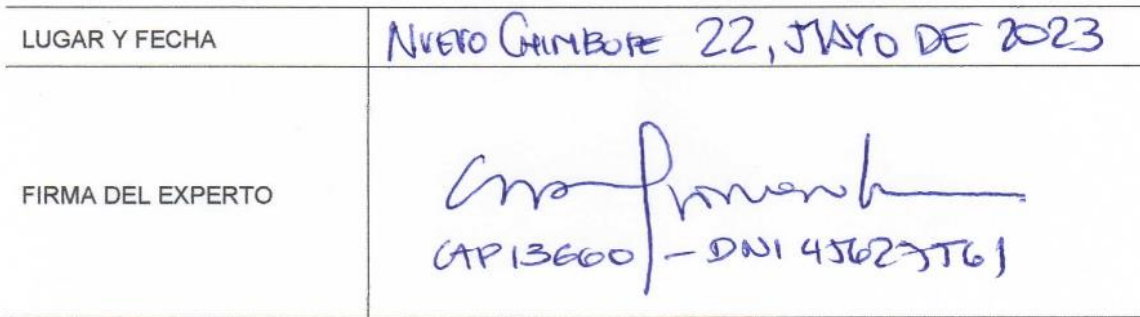 LUGAR Y FECHA
NUEVO CHIMBOTE 22, MAYO DE 2023
FIRMA DEL EXPERTO
CAP 13660 - DNI